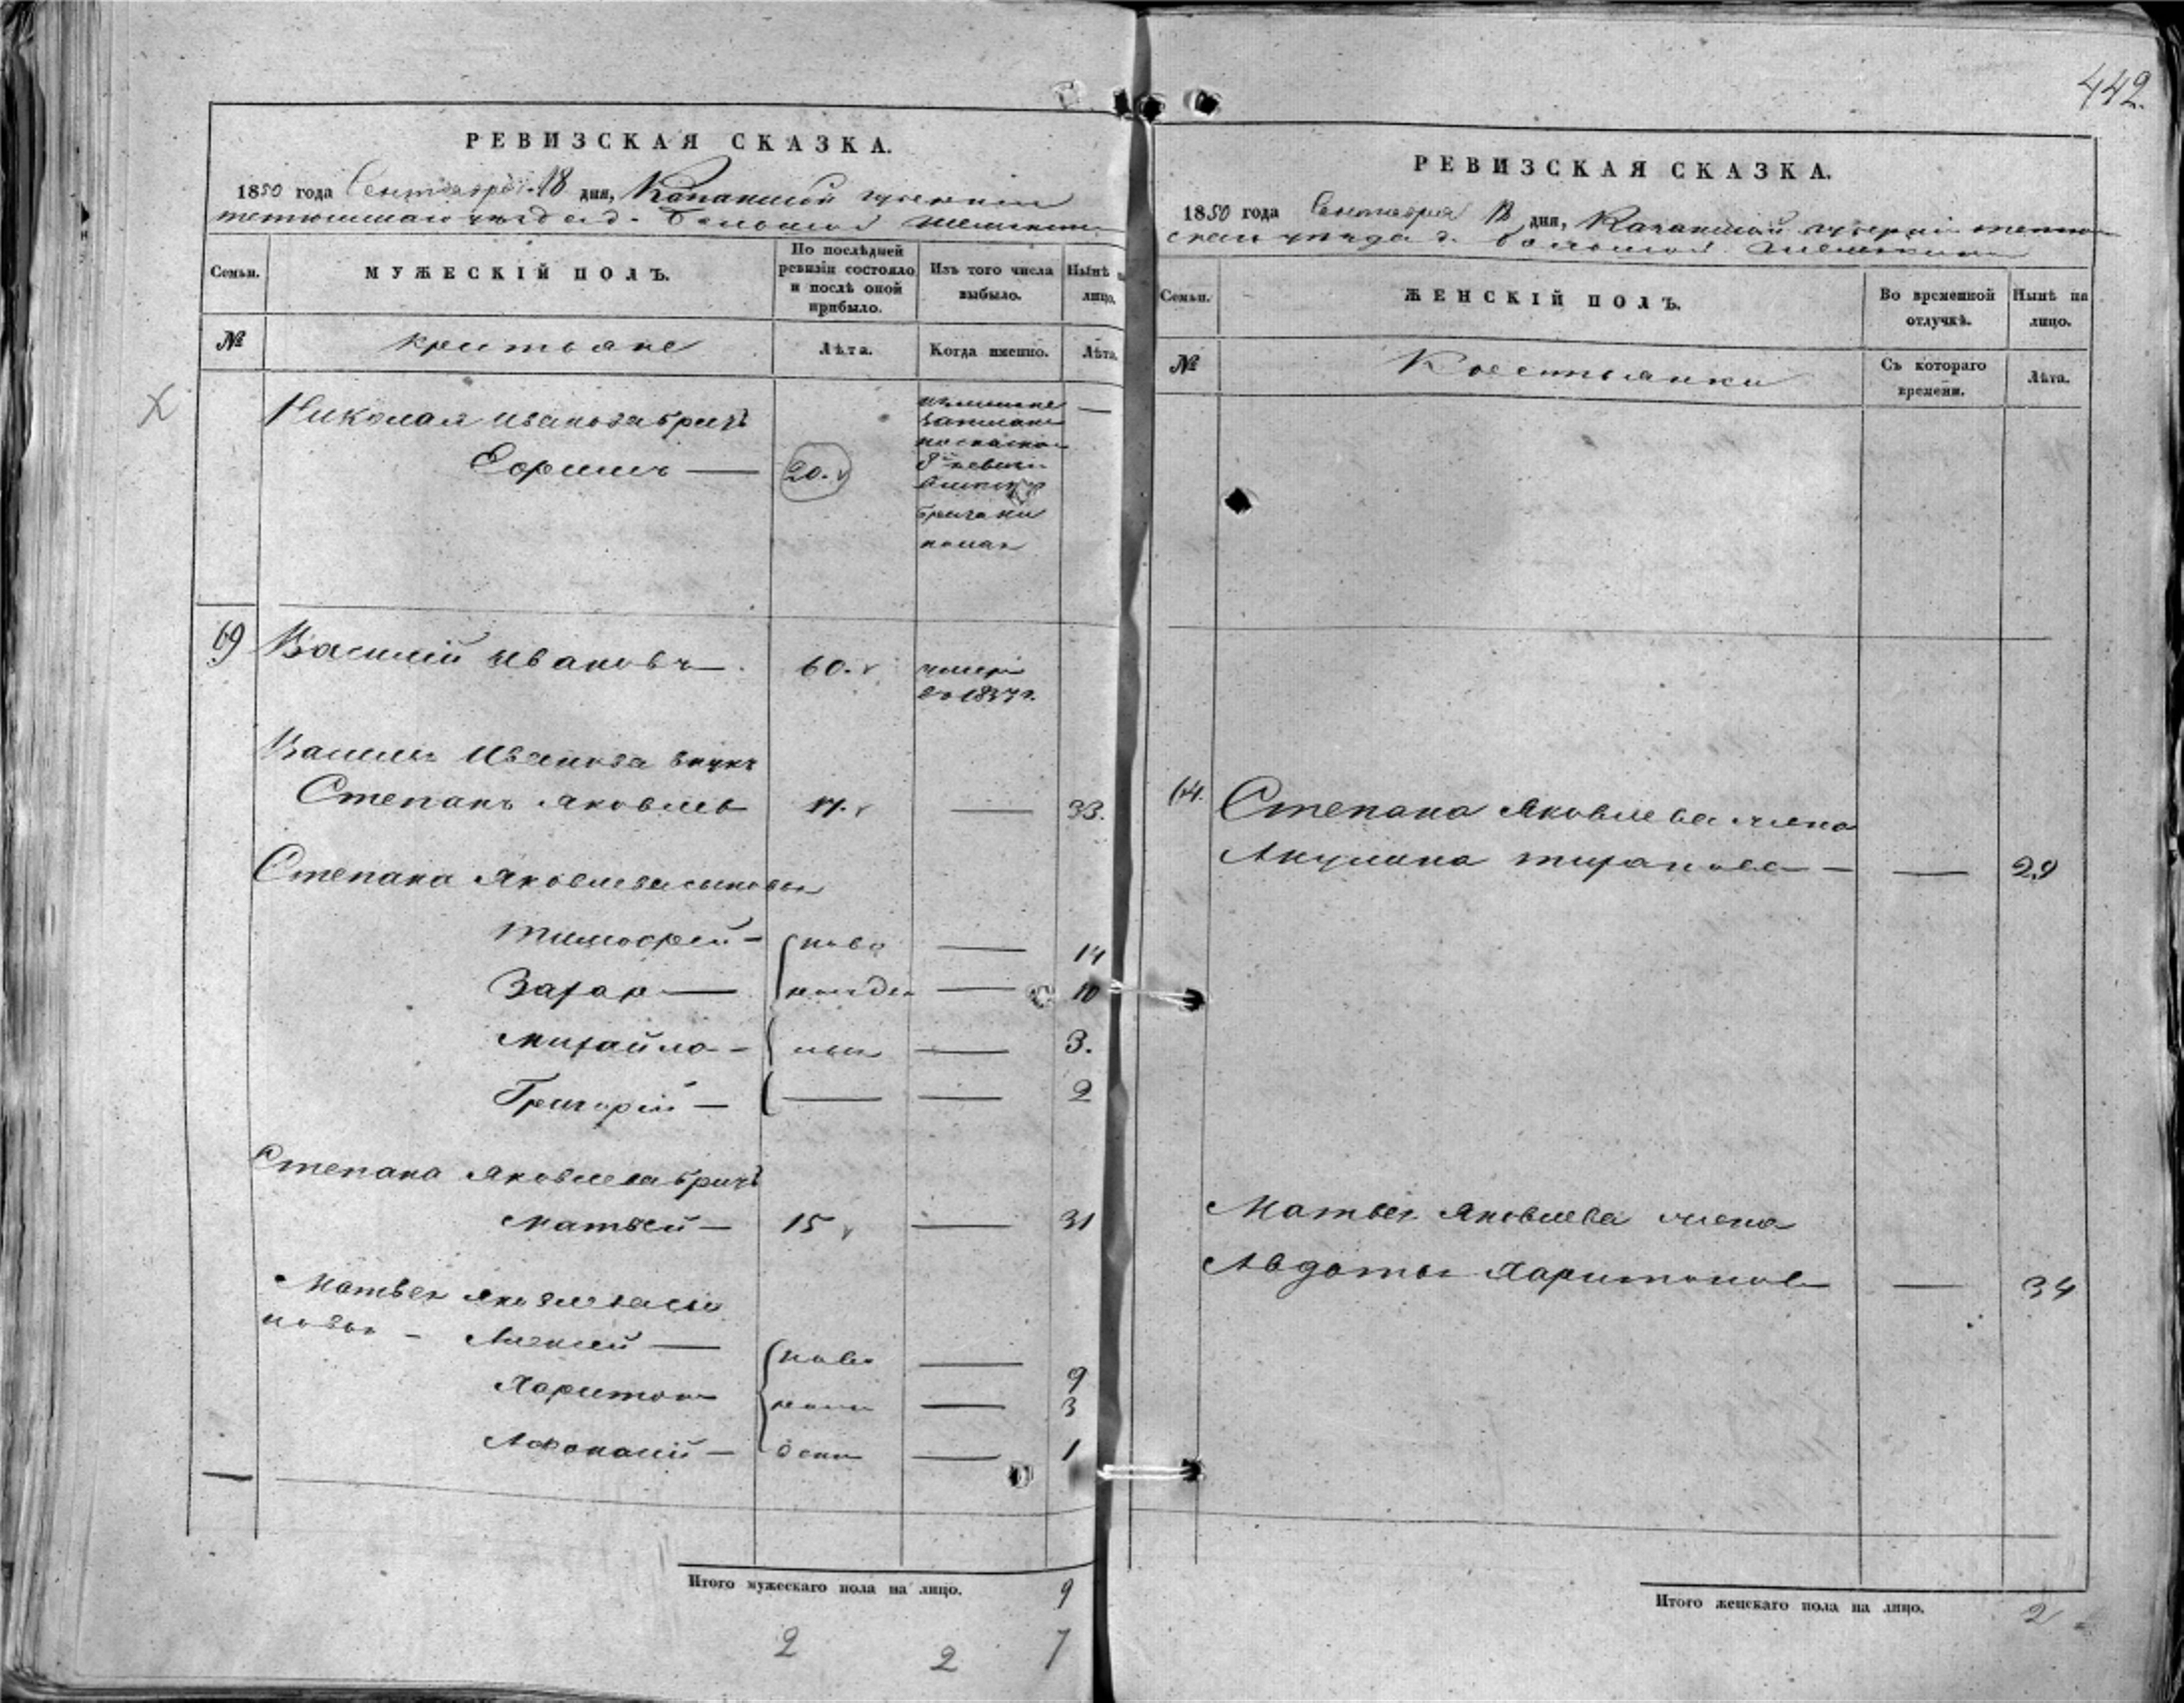 442.
РЕВИЗСКАЯ СКАЗКА.
1850 года Сентября 18 дня, Казанской губернiи
тетюшскаго уезда д. Большой
Семьи.
МУЖЕСКIЙ ПОЛЪ.
По послѣдней ревизiи состояло и послѣ оной прибыло.
Изъ того числа выбыло.
Нынѣ на лицо.
№
крестьяне
Лѣта.
Когда именно.
Лѣта.
Николая Иванова братъ
Ефримъ —
20.
—
69
Василiй Ивановъ
60.
умеръ
въ 1837 г.
Василья Иванова внукъ
Степанъ Яковлев
17.
—
33.
Степана Яковлева сыновья
Тимофей —
ново
—
14
Захар —
рожден
—
10
Михайло —
ные
—
3.
Григорiй —
—
—
2
Степана Яковлева братъ
Матвей —
15
—
31
Матвея Яковлева сы
новья — Алексей —
ново
—
9
Харитон
рож
—
3
Афонасiй —
дены
—
1
Итого мужескаго пола на лицо.
9
2
2
7
РЕВИЗСКАЯ СКАЗКА.
1850 года Сентября 18 дня, Казанской губернiи тетюш
скаго уезда д. Большой
Семьи.
ЖЕНСКIЙ ПОЛЪ.
Во временной отлучкѣ.
Нынѣ на лицо.
№
Крестьянки
Съ котораго времени.
Лѣта.
64.
Степана Яковлева жена
Акулина —
—
29
Матвея Яковлева жена
Авдотья Харитонова
—
34
Итого женскаго пола на лицо.
2